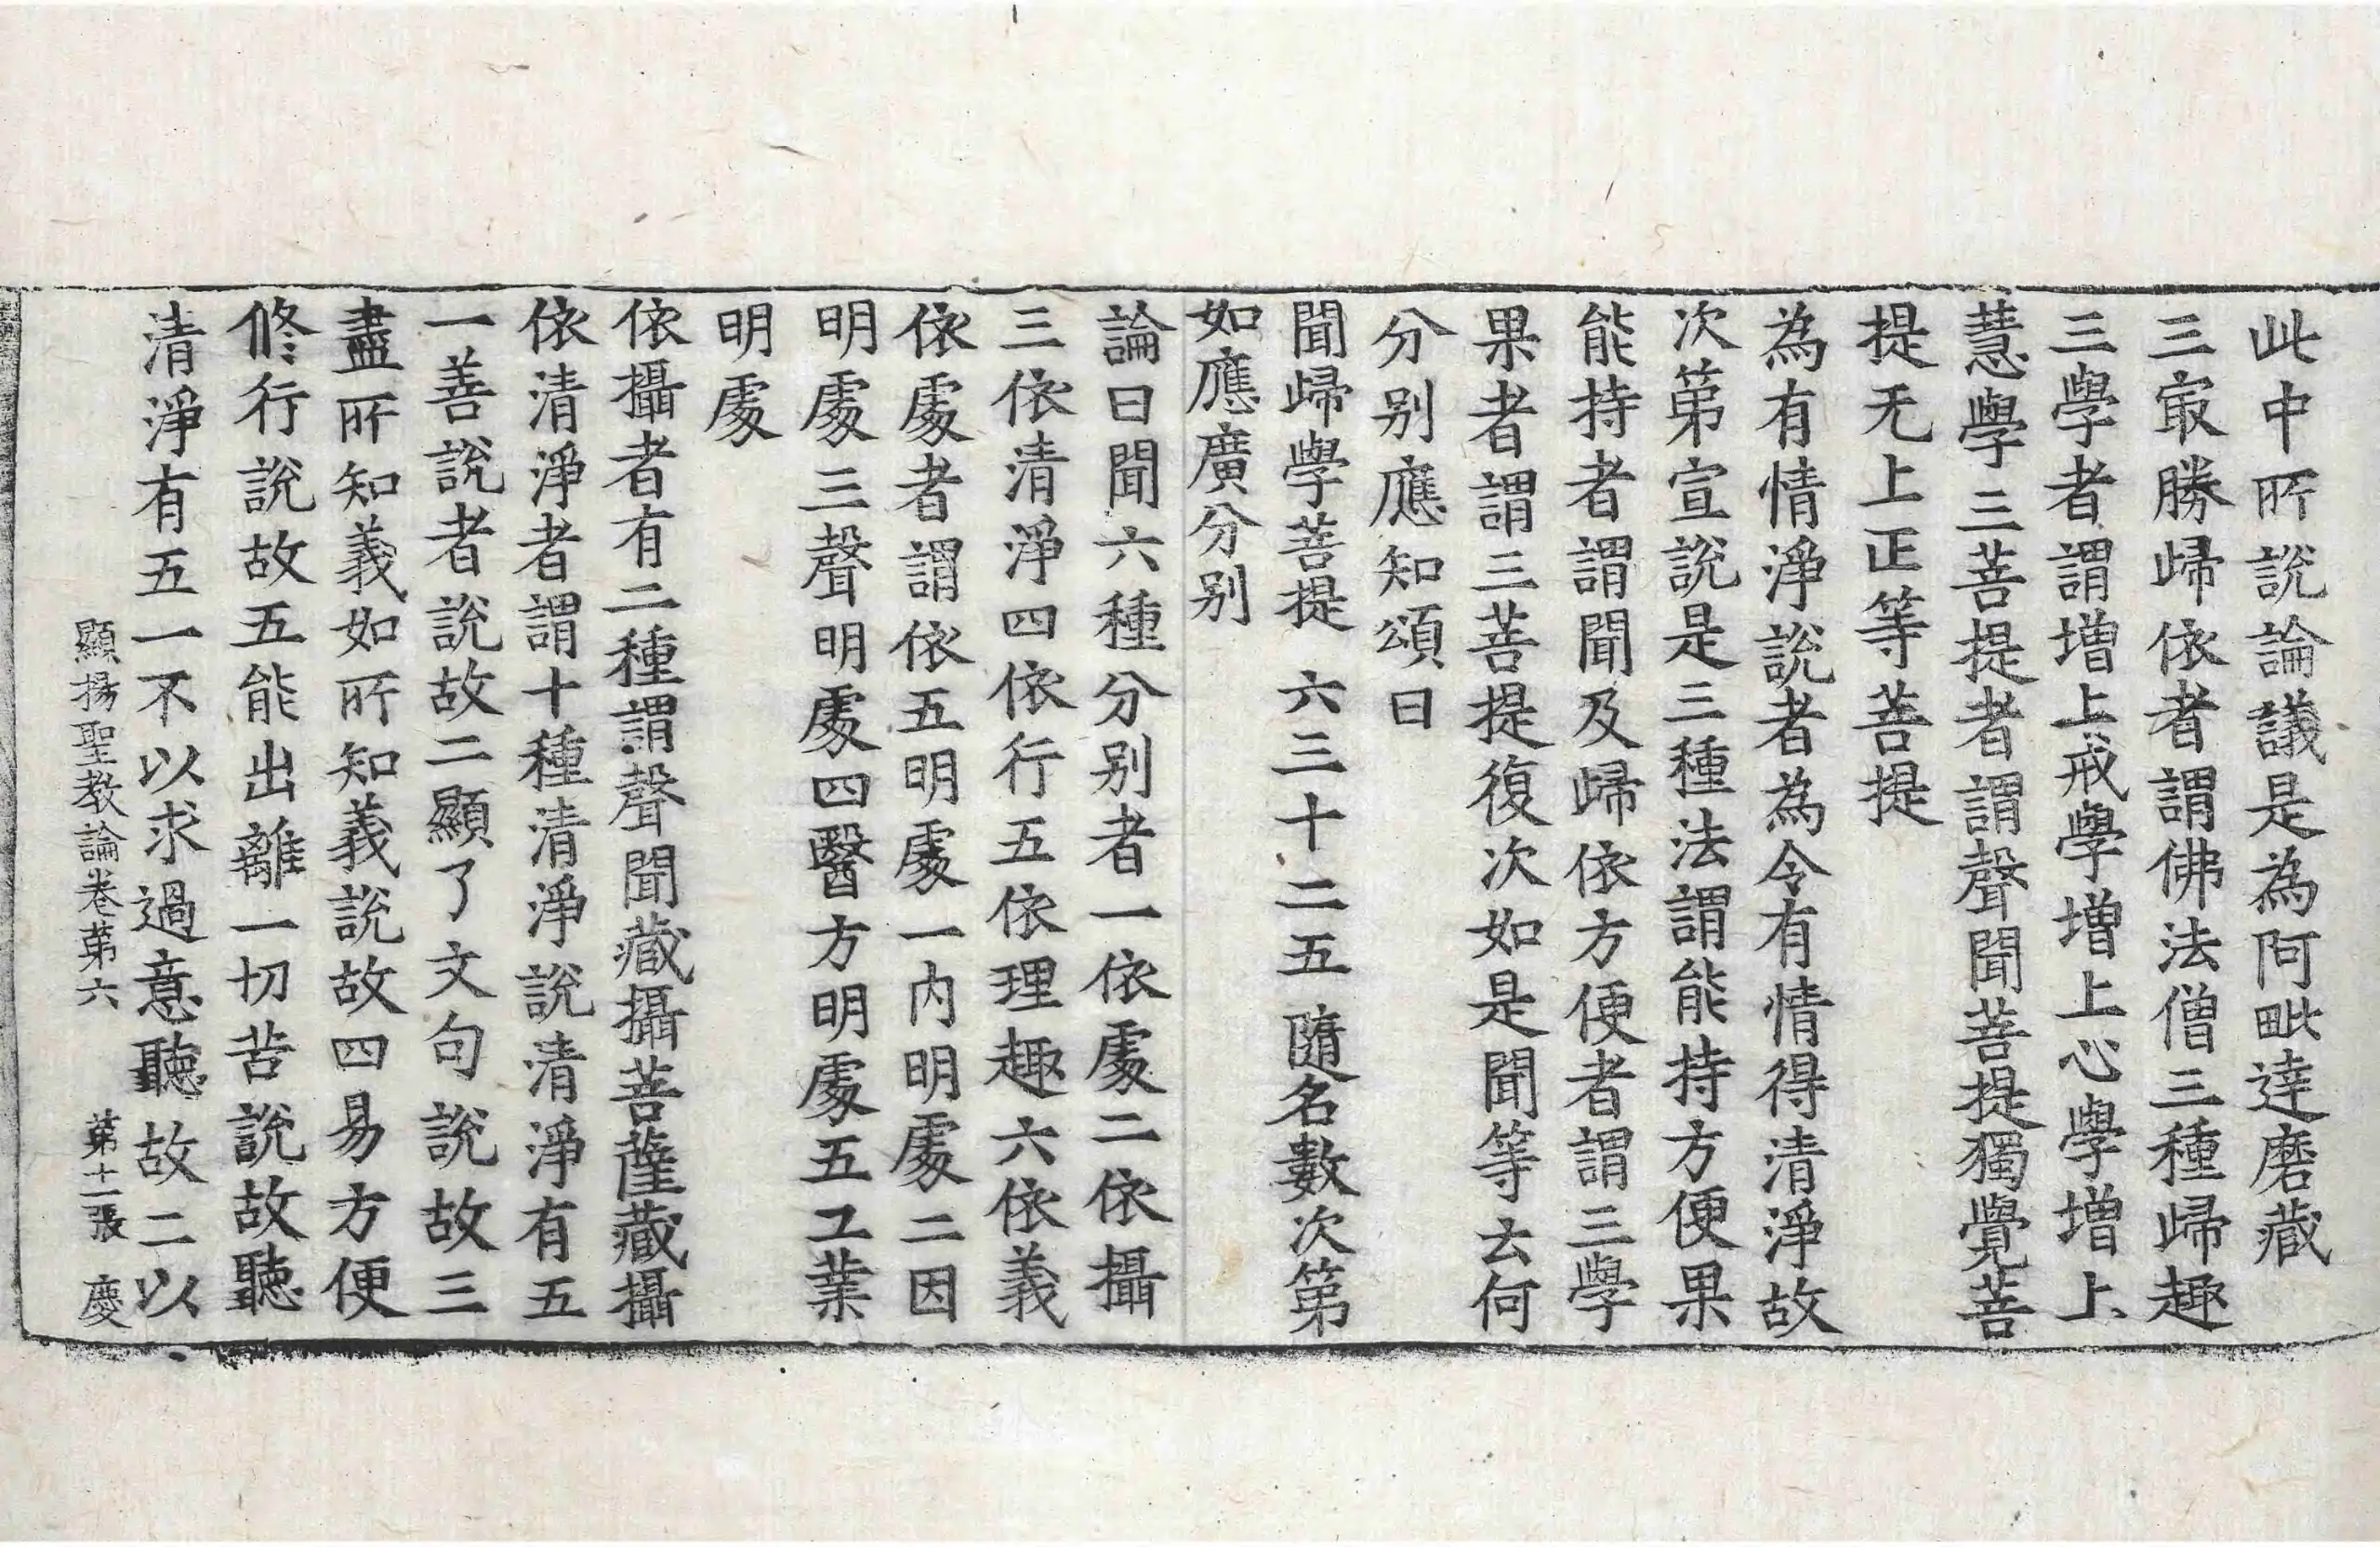 此中所說論議是為阿毗達磨藏
三㝡勝歸依者謂佛法僧三種歸趣
三學者謂增上戒學增上心學增上
慧學三菩提者謂聲聞菩提獨覺菩
提无上正等菩提
為有情淨說者為令有情得清淨故
次第宣說是三種法謂能持方便果
能持者謂聞及歸依方便者謂三學
果者謂三菩提復次如是聞等云何
分別應知頌曰
聞歸學菩提　六三十二五　隨名數次第
如應廣分別
論曰聞六種分別者一依處二依攝
三依清淨四依行五依理趣六依義
依處者謂依五明處一內明處二因
明處三聲明處四醫方明處五工業
明處
依攝者有二種謂聲聞藏攝菩薩藏攝
依清淨者謂十種清淨說清淨有五
一善說者說故二顯了文句說故三
盡所知義如所知義說故四易方便
修行說故五能出離一切苦說故聽
清淨有五一不以求過意聽故二以
顯揚聖教論卷第六　第十二張　慶